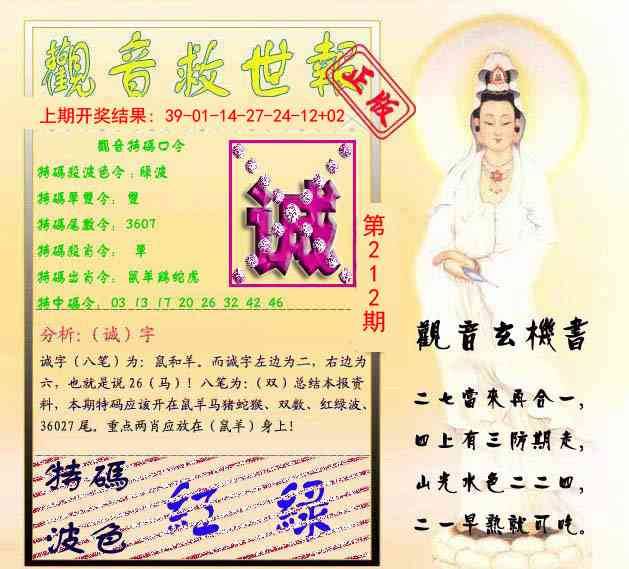 觀音救世報
正版
上期开奖结果：39-01-14-27-24-12+02
觀音特碼口令
特碼段波色令：綠波
特碼單雙令：雙
特碼尾數令：3607
特碼段肖令：單
特碼出肖令：鼠羊鷄蛇虎
特中碼令：03 13 17 20 26 32 42 46
诚
第212期
分析:（诚）字
诚字（八笔）为：鼠和羊。而诚字左边为二，右边为
六，也就是说26（马）！八笔为：（双）总结本报资
料，本期特码应该开在鼠羊马猪蛇猴、双数、红绿波、
36027尾。重点两肖应放在（鼠羊）身上！
特碼
波色
紅 綠
觀音玄機書
二七當來再合一，
四上有三防期走，
山光水色二二四，
二一早熟就可吃。